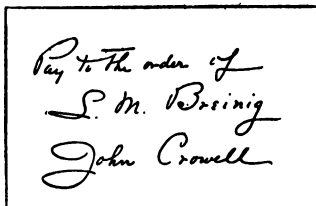 Pay to the order of
S. M. Breinig
John Crowell